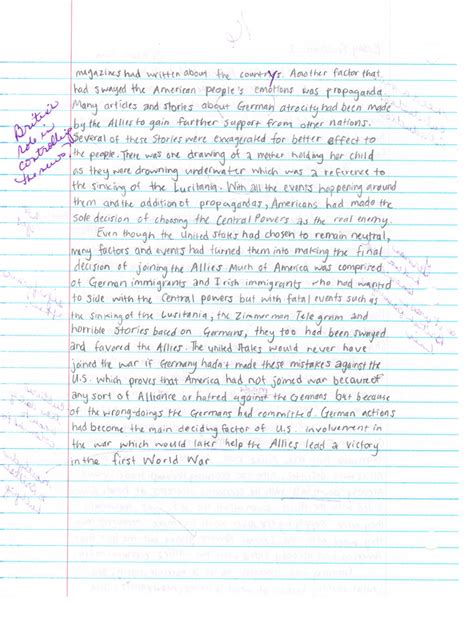 magazines had written about the country. Another factor that
had swayed the American people's emotions was propaganda
Many articles and stories about German atrocity had been made
by the Allies to gain further support from other nations.
Several of these stories were exagerated for better effect to
the people. There was one drawing of a mother holding her child
as they were drowning underwater which was a reference to
the sinking of the Lusitania. With all the events happening around
them and the addition of propagandas, Americans had made the
sole decision of choosing the Central Powers as the real enemy.
British
role in
controlling
the news
Even though the United States had chosen to remain neutral,
many factors and events had turned them into making the final
decision of joining the Allies. Much of America was comprised
of German immigrants and Irish immigrants who had wanted
to side with the Central powers but with fatal events such as
the sinking of the Lusitania, the Zimmerman Telegram and
horrible stories based on Germans, they too had been swayed
and favored the Allies. The united States would never have
joined the war if Germany hadn't made these mistakes against the
U.S. which proves that America had not joined war because of
any sort of Alliance or hatred against the Germans but because
of the wrong-doings the Germans had committed. German actions
had become the main deciding factor of U.S. involvement in
the war which would later help the Allies lead a victory
in the first World War